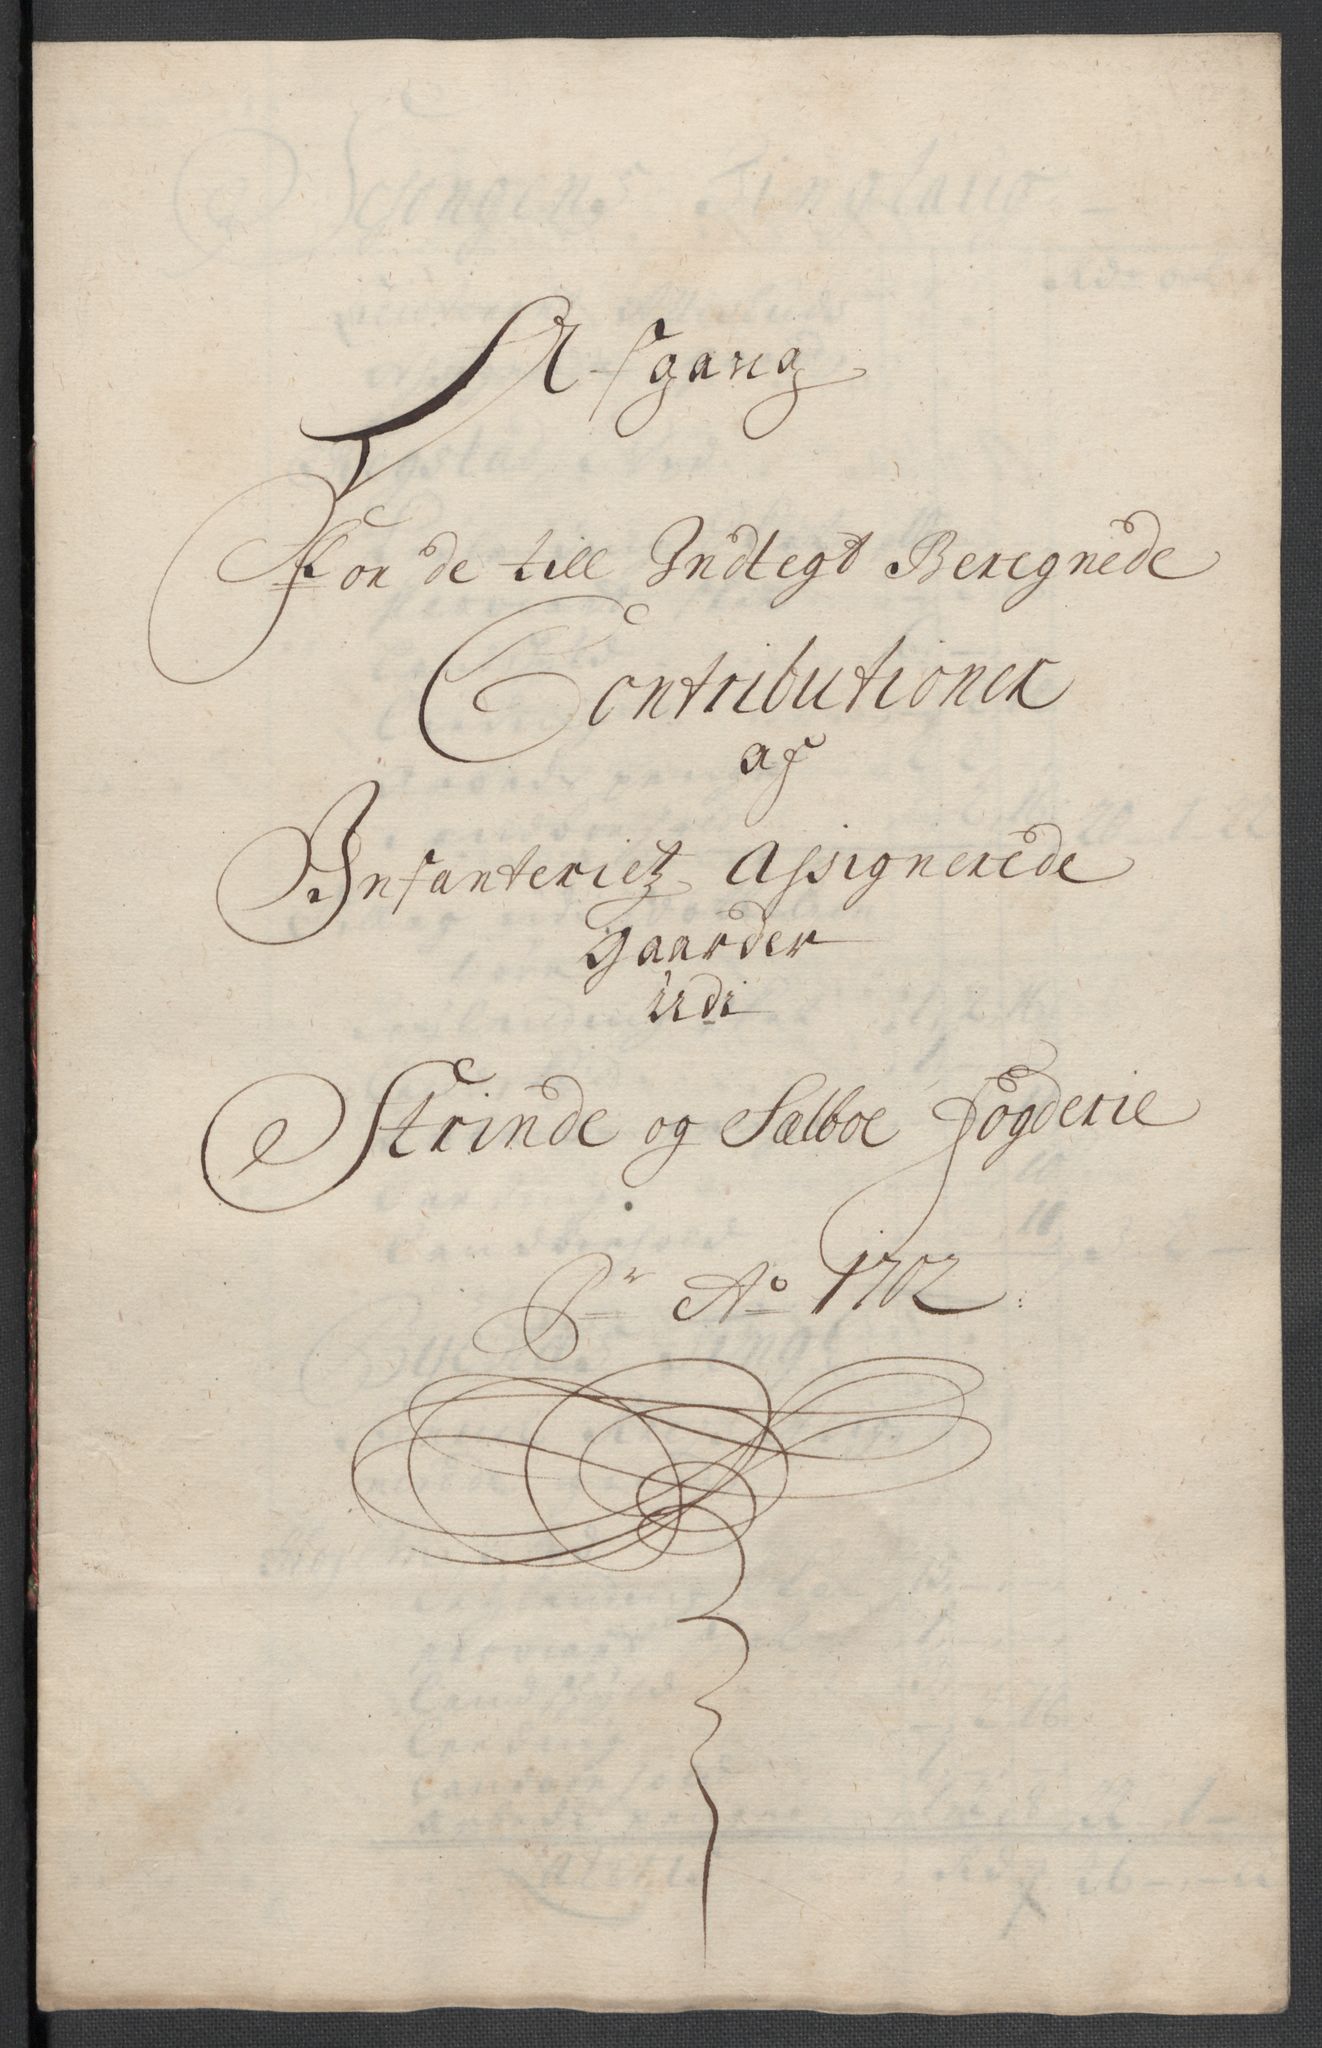 Afgang
For de till Indtegt Beregnede
Contributioner
af
Infanterietz Assignerede
Gaarder
udi
Strinde og Sælboe Fogderie
Pr Ao 1702